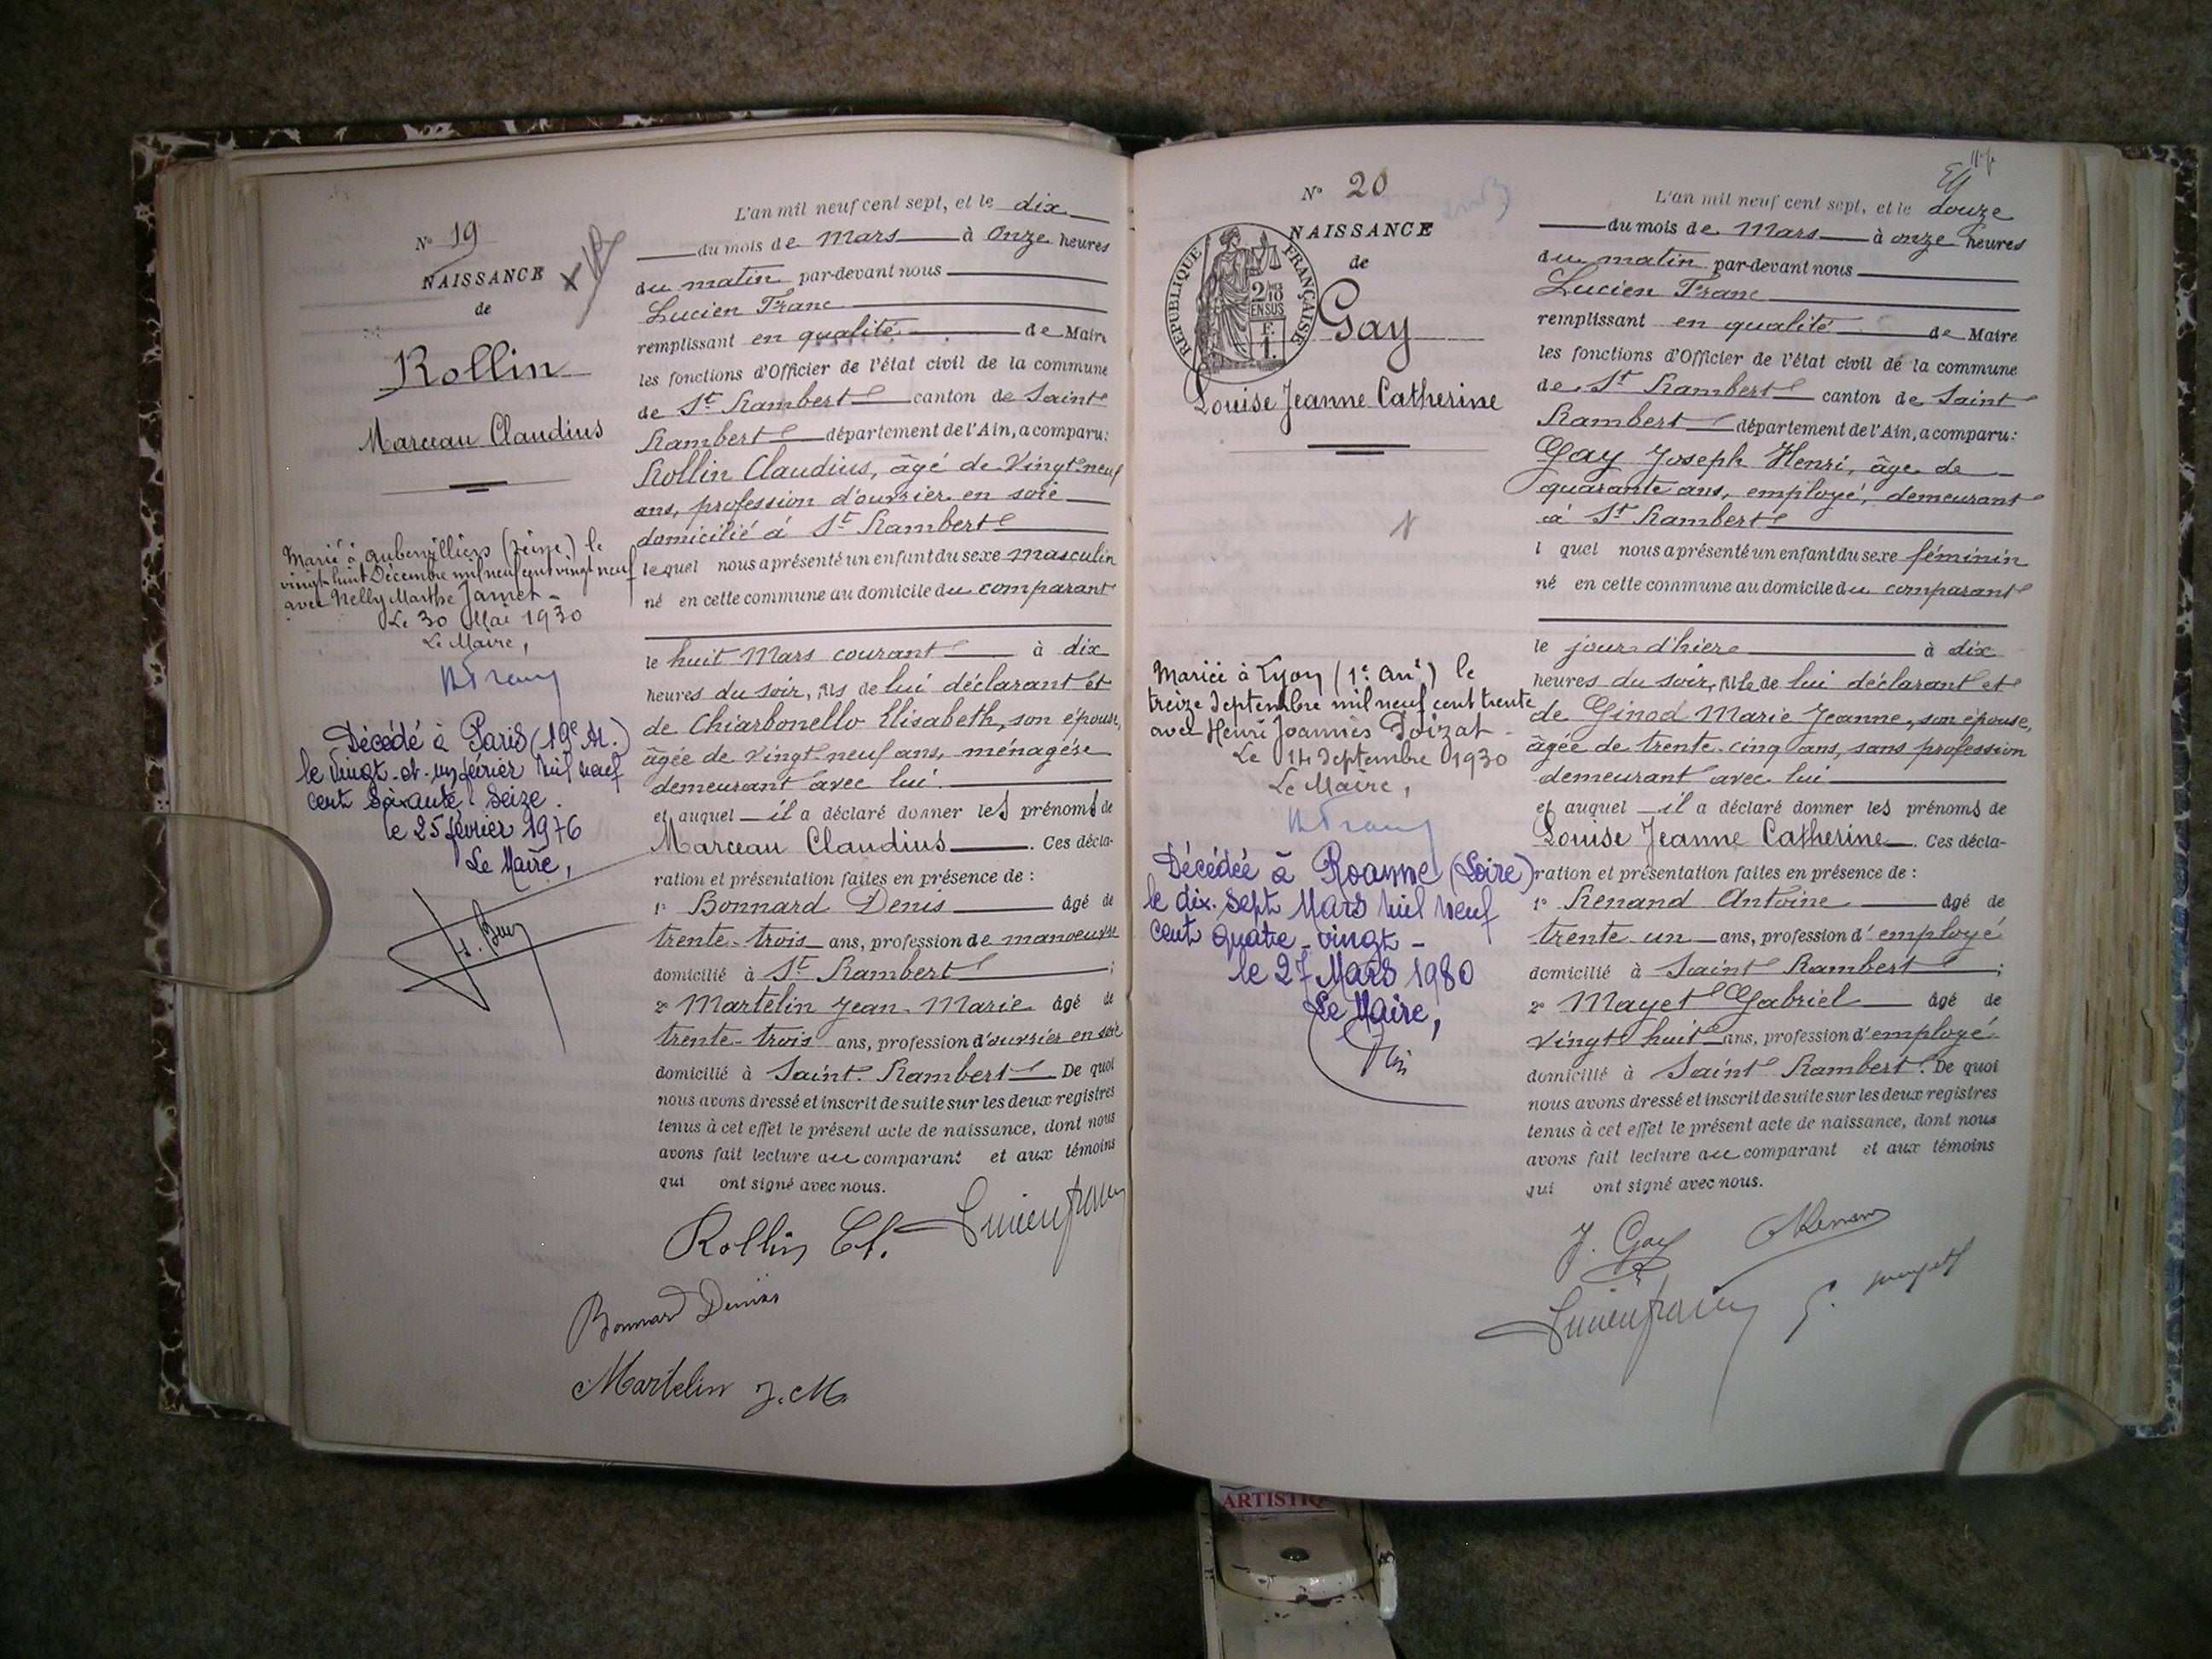 N° 19
NAISSANCE
de
Rollin
Marceau Claudius
Marié à Aubervilliers (Seine) le
vingt-huit Décembre mil neuf cent vingt neuf
avec Nelly Marthe Jamet -
Le 30 Mai 1930
Le Maire,
Décédé à Paris (19e Ar.)
le vingt-et-un février mil neuf
cent soixante seize.
le 25 février 1976
Le Maire,
L'an mil neuf cent sept, et le dix
du mois de Mars à Onze heures
du matin par-devant nous
Lucien Franc
remplissant en qualité de Maire
les fonctions d'Officier de l'état civil de la commune
de St Rambert canton de Saint
Rambert département de l'Ain, a comparu:
Rollin Claudius, âgé de Vingt-neuf
ans, profession d'ouvrier en soie
domicilié à St Rambert
lequel nous a présenté un enfant du sexe masculin
né en cette commune au domicile du comparant
le huit Mars courant à dix
heures du soir, fils de lui déclarant et
de Chiarbonello Elisabeth, son épouse,
âgée de vingt-neuf ans, ménagère
demeurant avec lui.
et auquel il a déclaré donner les prénoms de
Marceau Claudius. Ces décla-
ration et présentation faites en présence de :
1° Bonnard Denis âgé de
trente-trois ans, profession de manoeuvre
domicilié à St Rambert ;
2° Martelin Jean-Marie âgé de
trente-trois ans, profession d'ouvrier en soie
domicilié à Saint-Rambert De quoi
nous avons dressé et inscrit de suite sur les deux registres
tenus à cet effet le présent acte de naissance, dont nous
avons fait lecture au comparant et aux témoins
qui ont signé avec nous.
Rollin Cl. Lucien Franc
Bonnard Denis
Martelin J. M.
N° 20
NAISSANCE
de
RÉPUBLIQUE FRANÇAISE
2 MES
10
EN SUS
F.
1.
Gay
Louise Jeanne Catherine
Mariée à Lyon (1e Art) le
treize Septembre mil neuf cent trente
avec Henri Joannès Poizat -
Le 14 Septembre 1930
Le Maire,
Décédée à Roanne (Loire)
le dix-sept Mars mil neuf
cent quatre-vingt -
le 27 Mars 1980
Le Maire,
L'an mil neuf cent sept, et le douze
du mois de Mars à onze heures
du matin par-devant nous
Lucien Franc
remplissant en qualité de Maire
les fonctions d'Officier de l'état civil de la commune
de St Rambert canton de Saint
Rambert département de l'Ain, a comparu:
Gay Joseph Henri, âgé de
quarante ans, employé, demeurant
à St Rambert
l quel nous a présenté un enfant du sexe féminin
né en cette commune au domicile du comparant
le jour d'hier à dix
heures du soir, fille de lui déclarant et
de Ginod Marie Jeanne, son épouse,
âgée de trente-cinq ans, sans profession
demeurant avec lui
et auquel il a déclaré donner les prénoms de
Louise Jeanne Catherine. Ces décla-
ration et présentation faites en présence de :
1° Renand Antoine âgé de
trente un ans, profession d'employé
domicilié à Saint Rambert ;
2° Mayet Gabriel âgé de
vingt huit ans, profession d'employé
domicilié à Saint Rambert. De quoi
nous avons dressé et inscrit de suite sur les deux registres
tenus à cet effet le présent acte de naissance, dont nous
avons fait lecture au comparant et aux témoins
qui ont signé avec nous.
J. Gay
Lucien Franc G. Mayet
ARTISTIQ